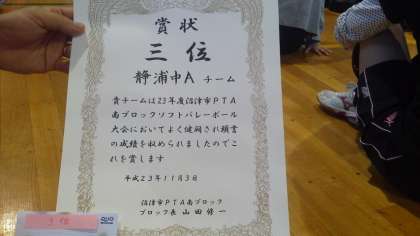 賞状
三位
静浦中A チーム
貴チームは23年度沼津市PTA
南ブロックソフトバレーボール
大会においてよく健闘され頭書
の成績を収められましたのでこ
れを賞します
平成23年11月3日
沼津市PTA南ブロック
ブロック長 山田修一
3位
QUO